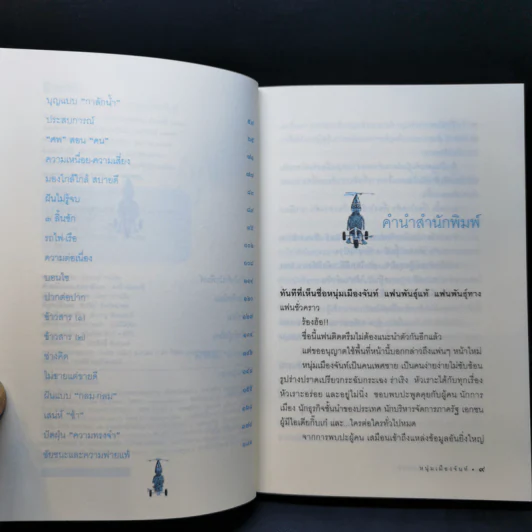 บุญแบบ "กาลักน้ำ"
ประสบการณ์
"ศพ" สอน "คน"
ความเหนื่อย-ความเสี่ยง
มองใกล้ไกล้ สบายดี
ฝันไม่รู้จบ
๓ ลิ้นชัก
รถไฟ-เรือ
ความต่อเนื่อง
นอนใจ
ปากต่อปาก
ข้าวสาร (๑)
ข้าวสาร (๒)
ช่างคิด
ไม่ขายแต่ขายดี
ฝันแบบ "กลม กลม"
เสน่ห์ "ช้า"
ปิดฝุ่น "ความทรงจำ"
ชัยชนะและความพ่ายแพ้
คำนำสำนักพิมพ์
ทันทีที่เห็นชื่อหนุ่มเมืองจันท์ แฟนพันธุ์แท้ แฟนพันธุ์ทาง
แฟนชั่วคราว
ร้องอ้อ!!
ชื่อนี้แฟนติดตรึมไม่ต้องแนะนำตัวกันอีกแล้ว
แต่ขออนุญาตใช้พื้นที่หน้านี้บอกกล่าวถึงแฟนๆ หน้าใหม่
หนุ่มเมืองจันท์เป็นคนเพศชาย เป็นคนง่ายง่ายไม่ซับซ้อน
รูปร่างปราดเปรียวกระฉับกระเฉง ร่าเริง หัวเราะได้กับทุกเรื่อง
หัวเราะอร่อย และอยู่ไม่นิ่ง ชอบพบปะพูดคุยกับผู้คน นักการ
เมือง นักธุรกิจชั้นนำของประเทศ นักบริหารจัดการภาครัฐ เอกชน
ผู้มีไอเดียกิ๊บเก๋ และ...ใครต่อใครทั่วไปหมด
จากการพบปะผู้คน เสมือนเข้าถึงแหล่งข้อมูลอันยิ่งใหญ่
หนุ่มเมืองจันท์ • ๙